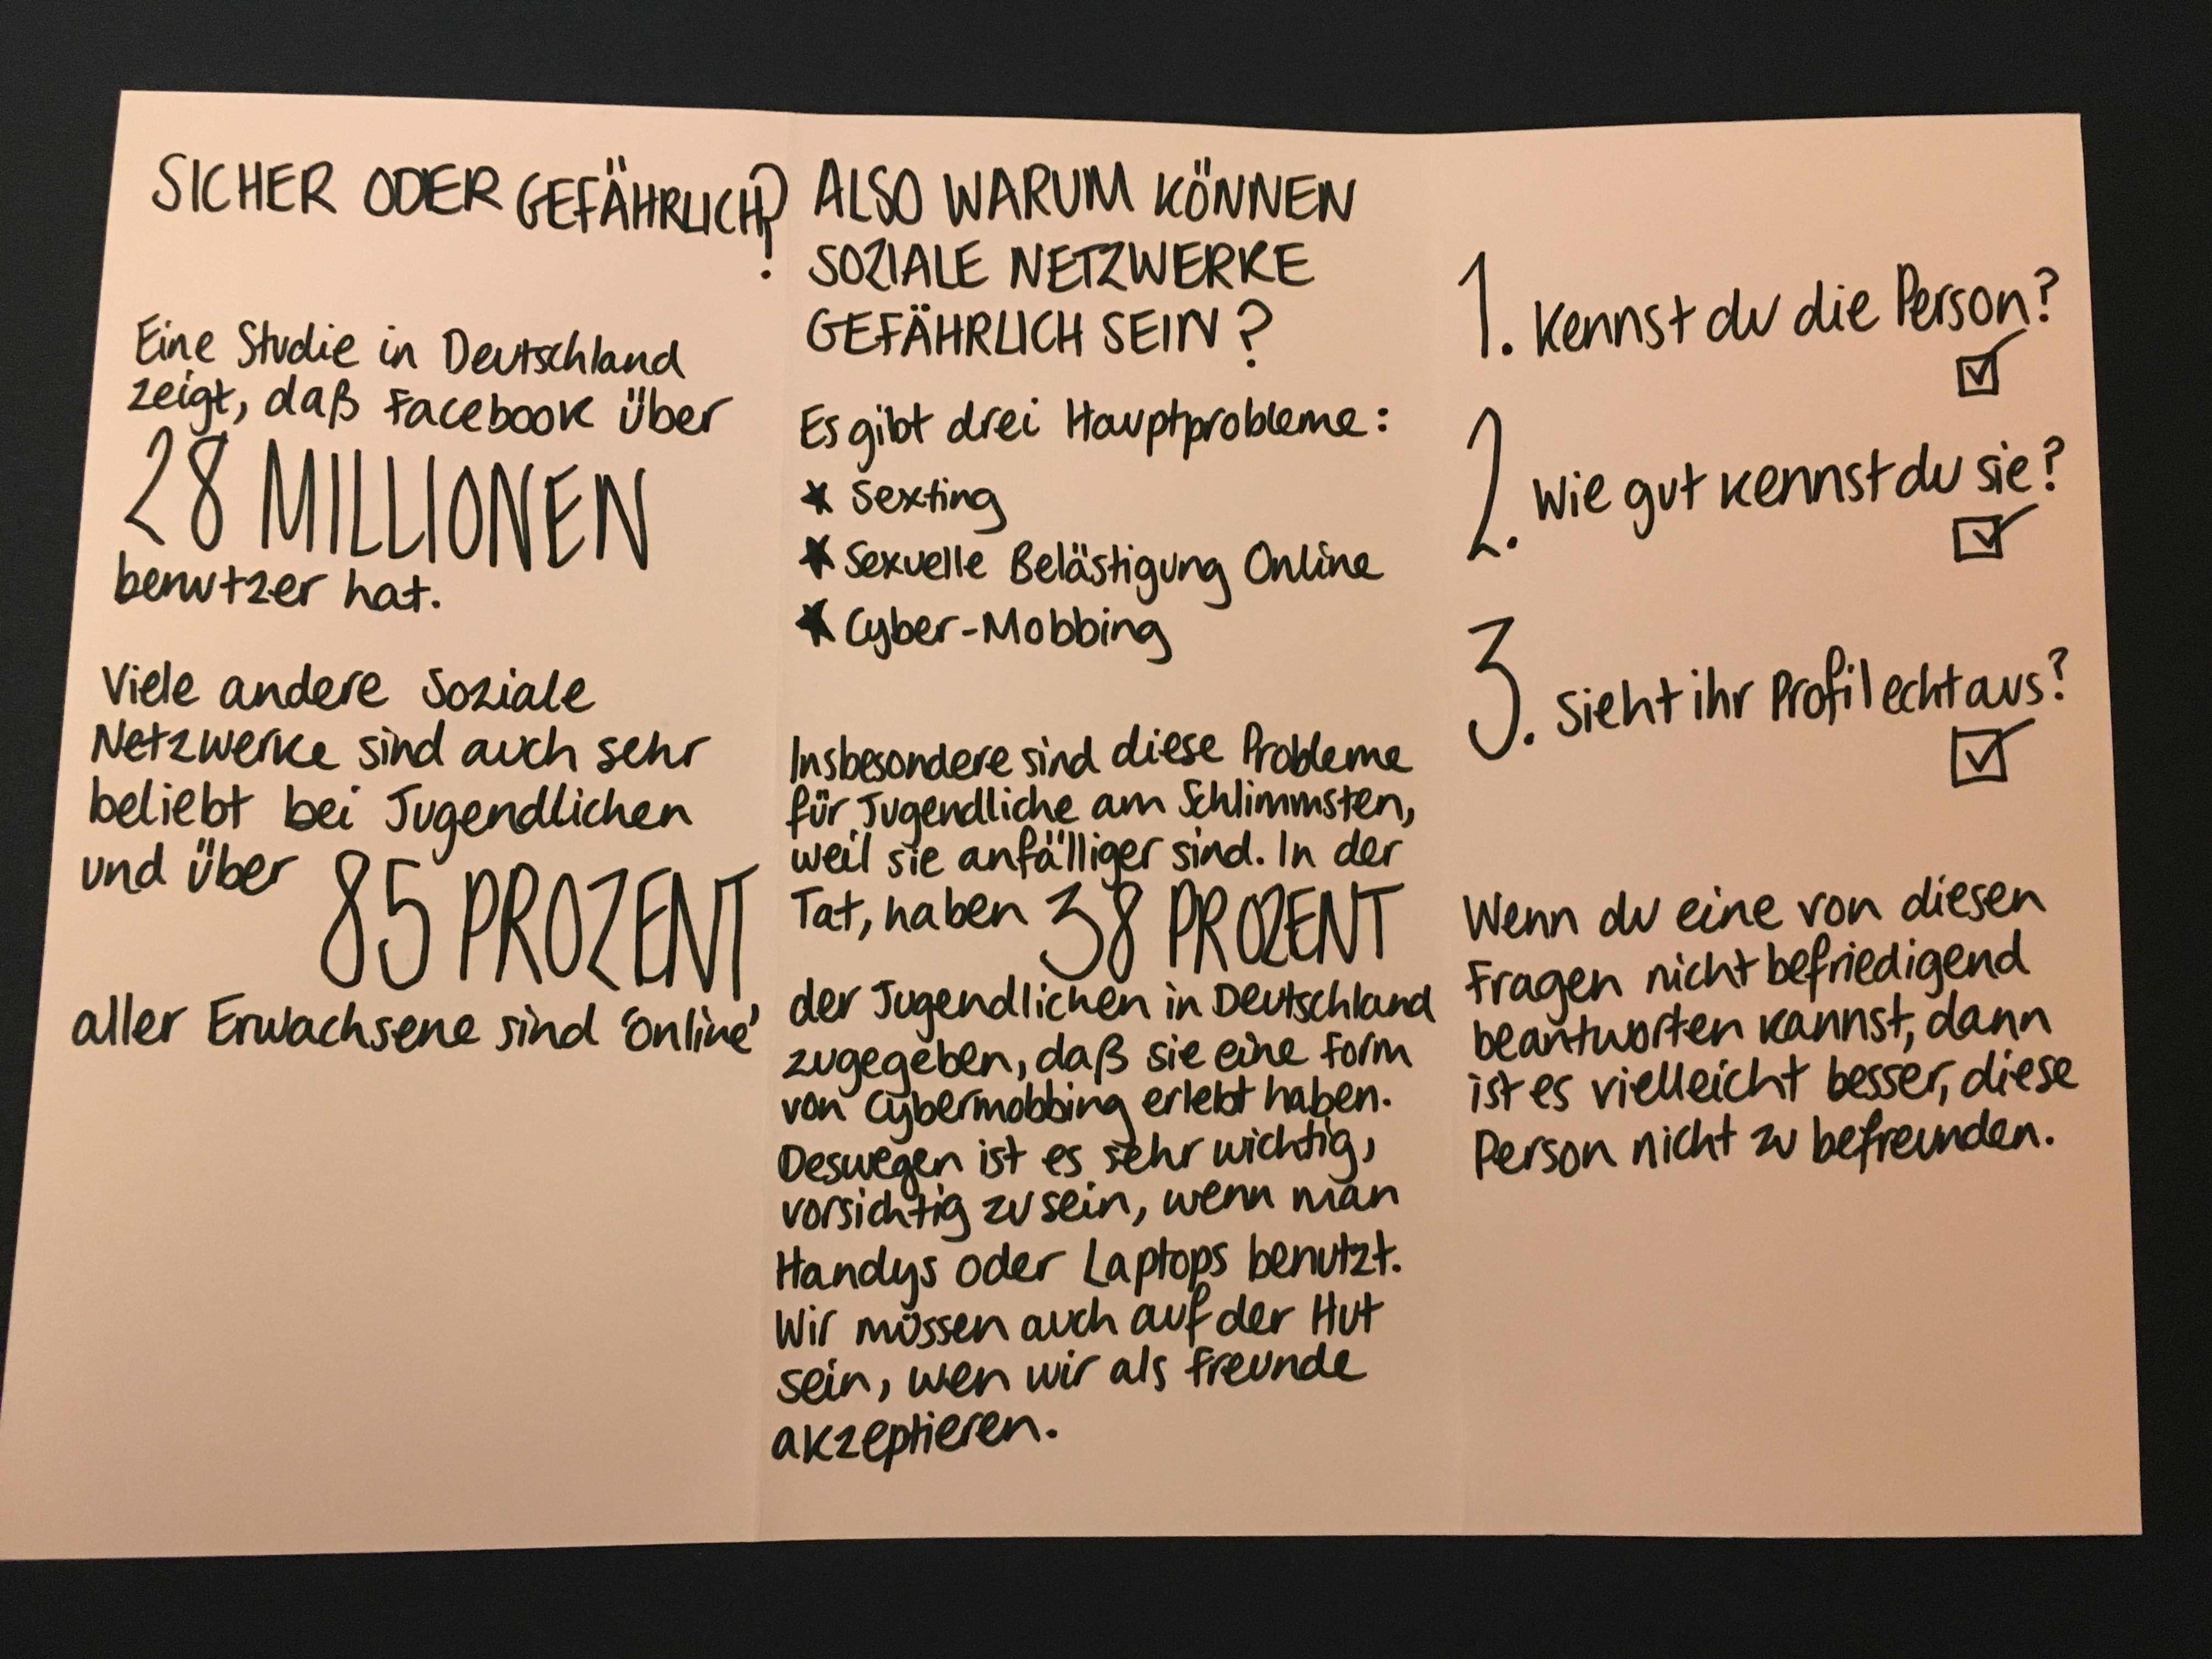 SICHER ODER GEFÄHRLICH?!
Eine Studie in Deutschland
zeigt, daß Facebook über
28 MILLIONEN
benutzer hat.
Viele andere Soziale
Netzwerke sind auch sehr
beliebt bei Jugendlichen
und über 85 PROZENT
aller Erwachsene sind 'online'
ALSO WARUM KÖNNEN
SOZIALE NETZWERKE
GEFÄHRLICH SEIN?
Es gibt drei Hauptprobleme:
★ Sexting
★ Sexuelle Belästigung Online
★ Cyber-Mobbing
Insbesondere sind diese Probleme
für Jugendliche am Schlimmsten,
weil sie anfälliger sind. In der
Tat, haben 38 PROZENT
der Jugendlichen in Deutschland
zugegeben, daß sie eine Form
von Cybermobbing erlebt haben.
Deswegen ist es sehr wichtig,
vorsichtig zu sein, wenn man
Handys oder Laptops benutzt.
Wir müssen auch auf der Hut
sein, wen wir als Freunde
akzeptieren.
1. Kennst du die Person?
2. Wie gut kennst du sie?
3. Sieht ihr Profil echt aus?
Wenn du eine von diesen
Fragen nicht befriedigend
beantworten kannst, dann
ist es vielleicht besser, diese
Person nicht zu befreunden.